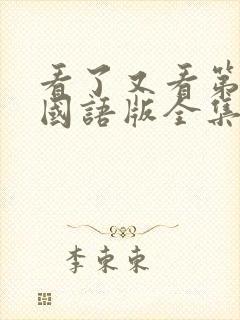 看了又看第
國語版全集
李東東